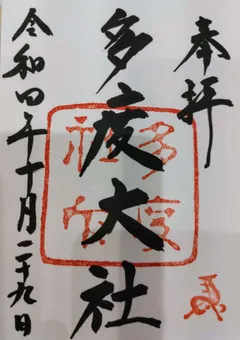 奉拝
多度大社
令和四年十月二十九日